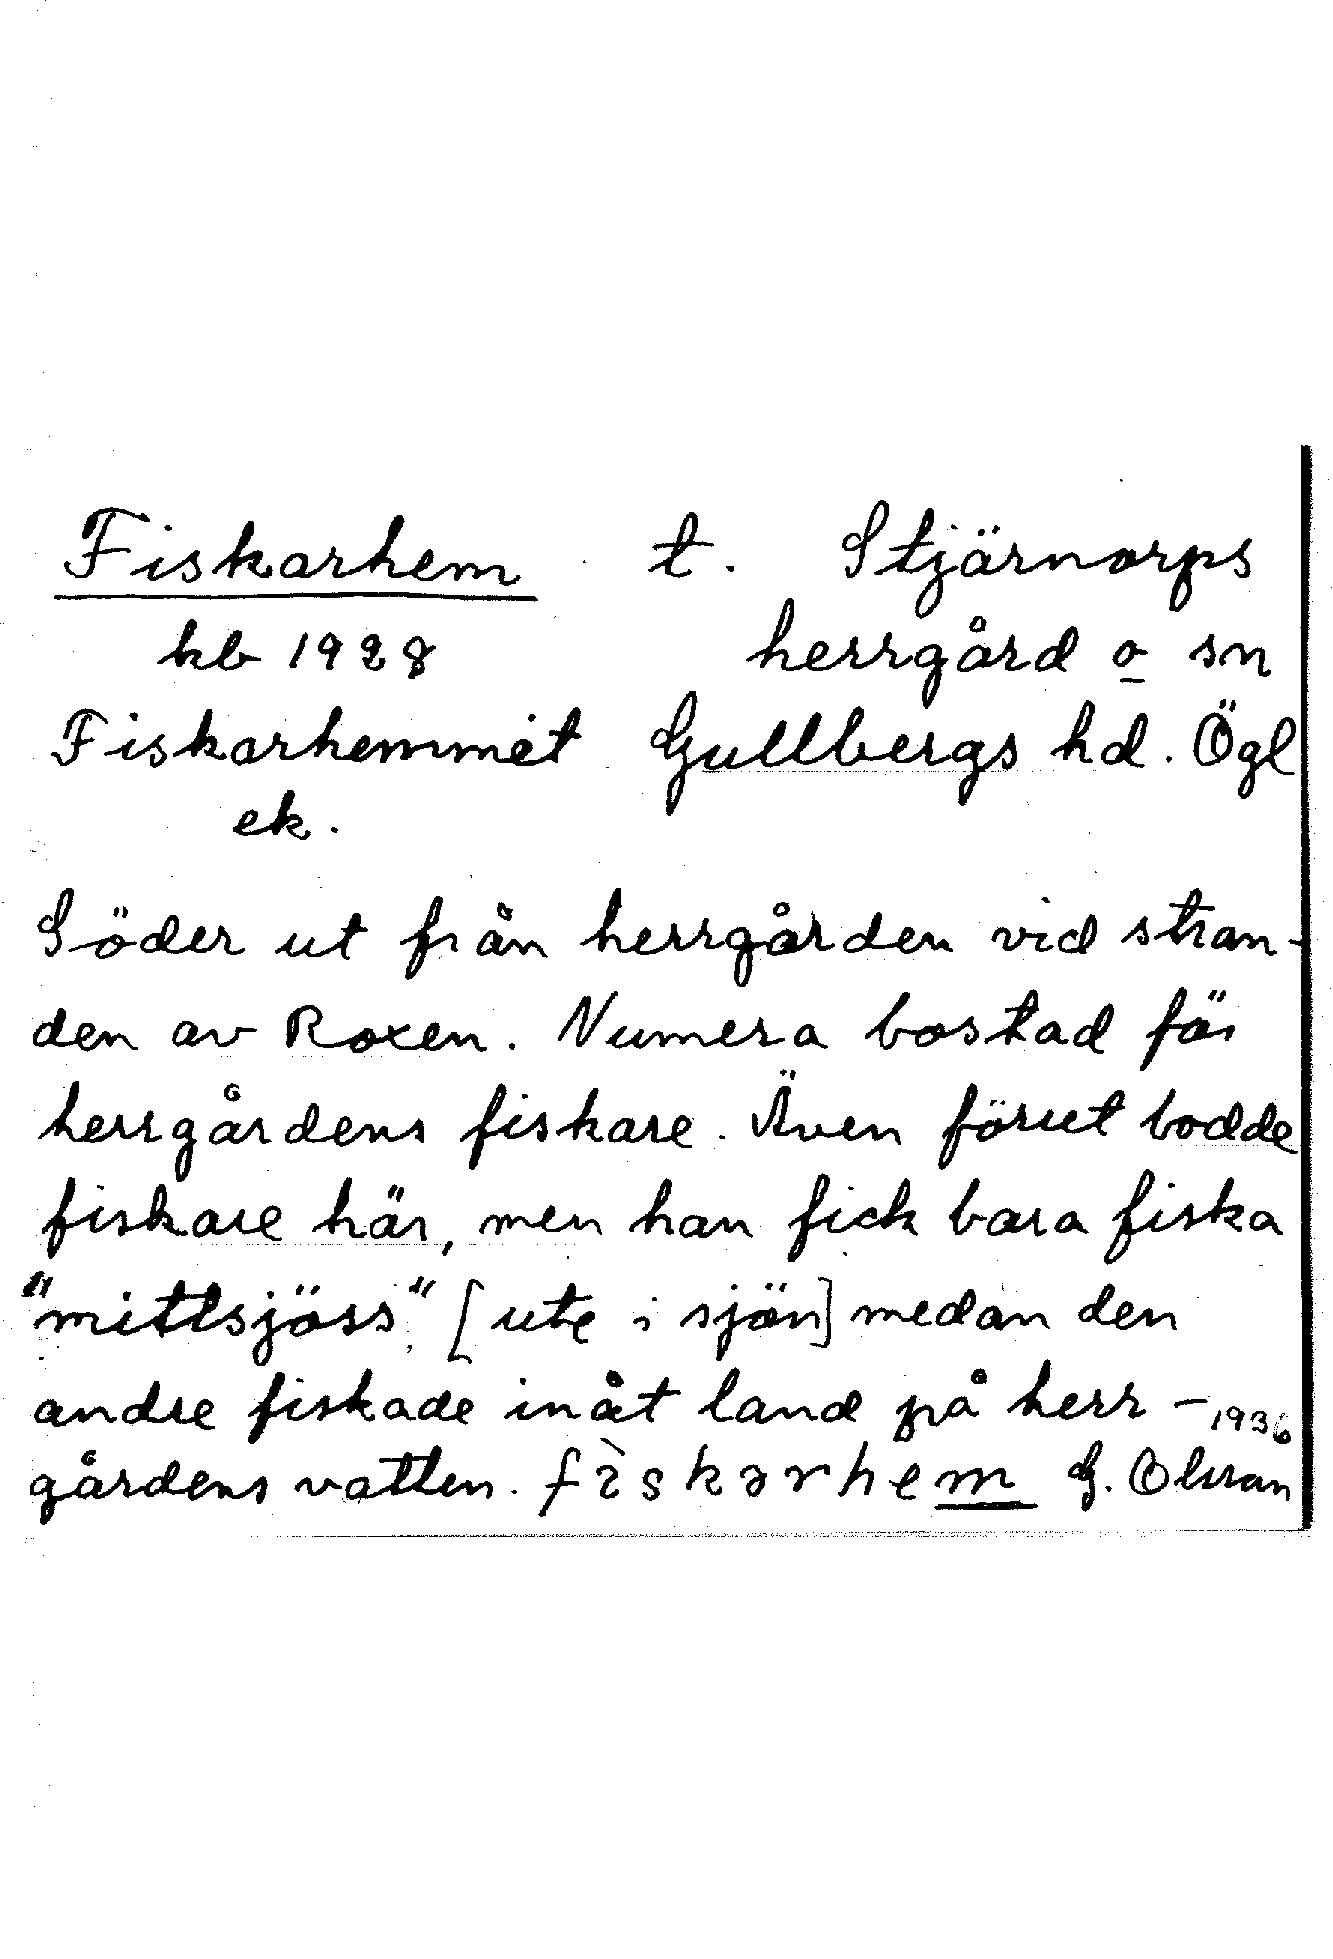 Fiskarhem t. Stjärnorps
kb 1928 herrgård o sn
Fiskarhemmet Gullbergs hd. Ögl
ek.
Söder ut från herrgården vid stran-
den av Roxen. Numera bostad för
herrgårdens fiskare. Även förut bodde
fiskare här, men han fick bara fiska
"mittsjöss" [ute i sjön] medan den
andre fiskade inåt land på herr-
1936
gårdens vatten. fìskarhem G. Olsson